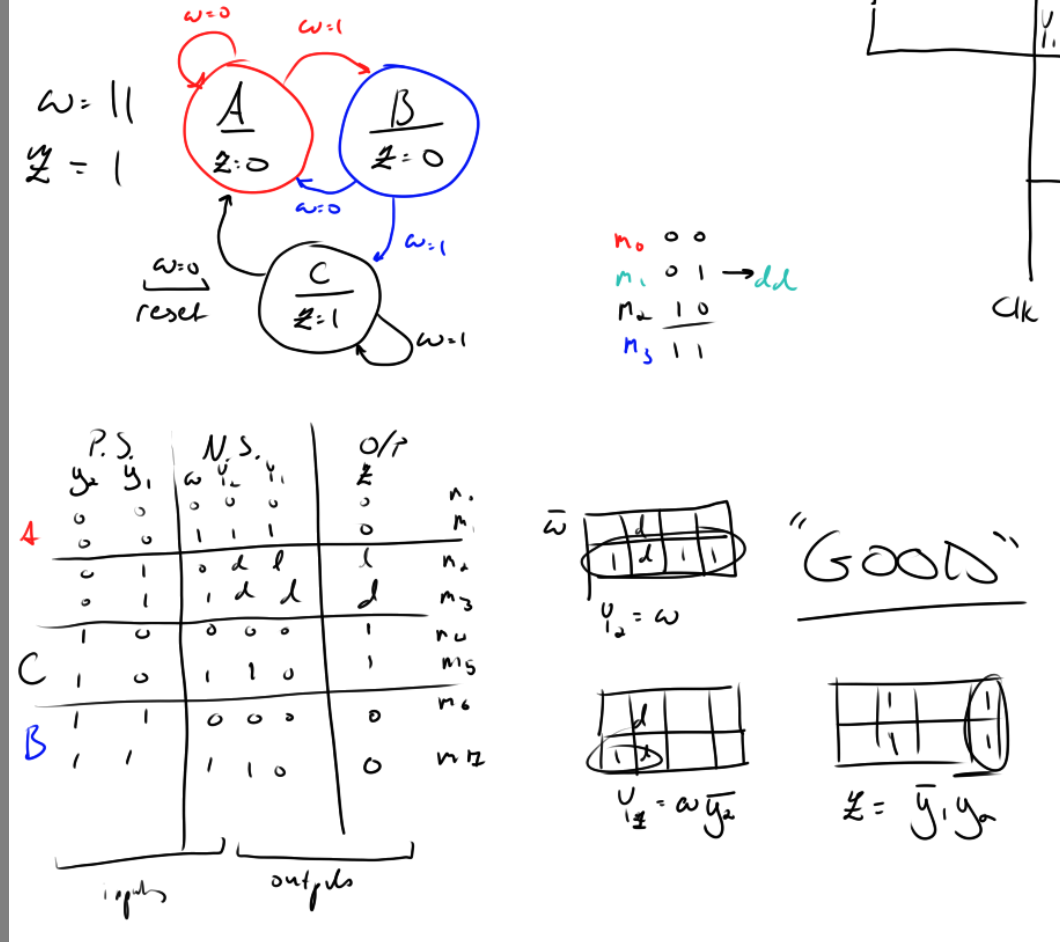 ω=0
ω=1
ω= 11
Z = 1
A
Z:0
B
Z=0
ω=0
ω=1
C
Z=1
ω=0
reset
ω=1
m₀ 0 0
m₁ 0 1 → dd
m₂ 1 0
m₃ 1 1
Y₁
Clk
P.S. N.S. O/P
y₂ y₁ ω Y₂ Y₁ Z
0 0 0 0 0 0 m₀
A 0 0 1 1 1 0 m₁
0 1 0 d d m₂
0 1 1 d d d m₃
1 0 0 0 0 1 m₄
C 1 0 1 1 0 1 m₅
1 1 0 0 0 0 m₆
B 1 1 1 1 0 0 m7
inputs outputs
ω̅
d
1 d 1 1
Y₂ = ω
"GOOD"
d
1 d
Y₁ = ω y̅₂
1 1
1 1
Z = y̅₁ y₂